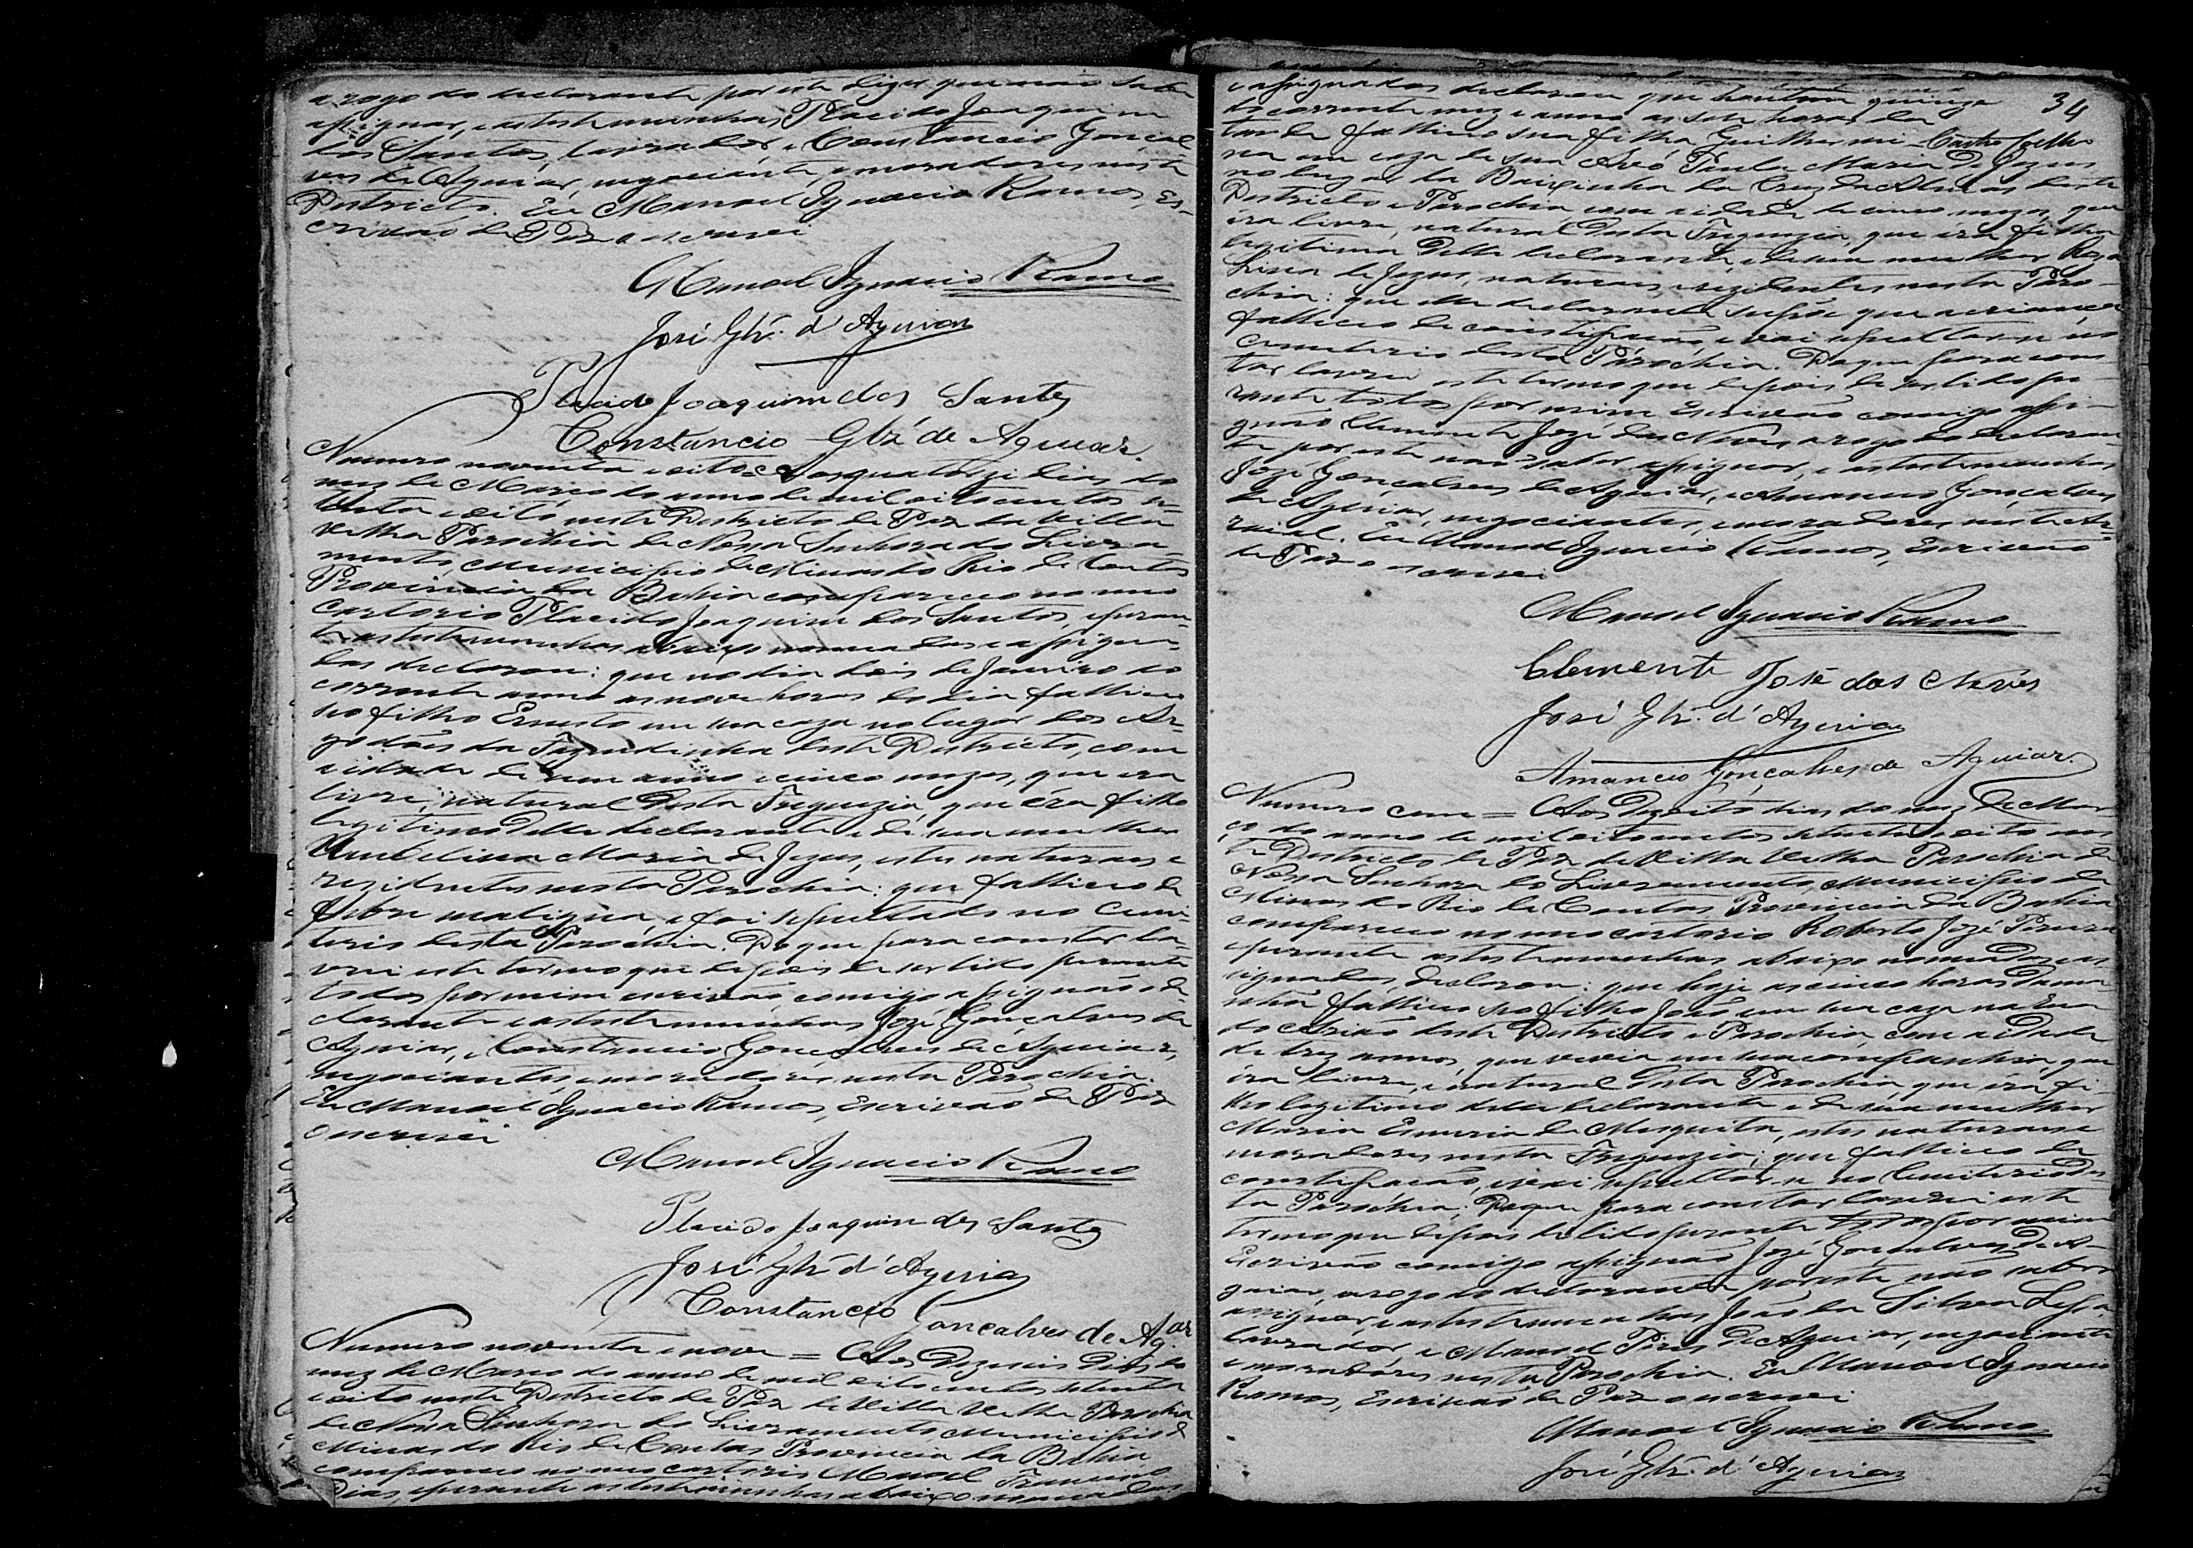 a rogo do declarante por este dizer que não sabe
assignar, e as testemunhas Placido Joaquim
dos Santos, lavrador e Constancio Gonçal-
ves de Aguiar, negociante, e moradores neste
Districto. Eu Manoel Ignacio Ramos, Es-
crivão de Paz o escrevi
Manoel Ignacio Ramos
José Glz. d'Aguiar
Placido Joaquim dos Santos
Constancio Glz. de Aguiar.
Numero noventa e oito = Aos quatorze dias do
mez de Março do anno de mil oitocentos se-
tenta e oito neste Districto de Paz da Villa
Velha Parochia de Nossa Senhora do Livra-
mento, Municipio de Minas do Rio de Contas
Provincia da Bahia compareceo no meu
Cartorio Placido Joaquim dos Santos, e peran-
te as testemunhas abaixo nomeadas e assigna-
das declarou: que no dia dois de Janeiro do
corrente anno as nove horas do dia falleceo
seo filho Ernesto em sua caza no lugar dos Al-
godões da deste Districto, com
a idade de um anno e cinco mezes, que era
livre, natural desta Freguezia, que éra filho
legitimo delle declarante e de sua mulher
Maria de Jezus, estes naturaes e
rezidentes nesta Parochia: que falleceo de
febre maligna, e foi sepultado no Cemi-
terio desta Parochia. Do que para constar la-
vrei este termo que depois de ser lido perante
todos por mim escrivão comigo assignão o de-
clarante e as testemunhas José Gonçalves de
Aguiar, e Constancio Gonçalves de Aguiar,
negociantes, e moradores nesta Parochia.
Eu Manoel Ignacio Ramos, Escrivão de Paz
o escrevi
Manoel Ignacio Ramos
Placido Joaquim dos Santos
José Glz. d'Aguiar
Constancio Gonçalves de Agar.
Numero noventa e nove = Aos Dezeseis dias do
mez de Março do anno de mil oito centos setenta
e oito neste Districto de Paz de Villa Velha Parochia
de Nossa Senhora do Livramento Municipio de
Minas do Rio de Contas Provincia da Bahia
compareceo no meu cartorio Manoel
Dias, e perante as testemunhas abaixo nomeadas
34
e assignadas declarou que hontem quinze
do corrente mez e anno as sete horas da
tarde falleceo sua filha Guilhermi-
na em caza de sua Avó Paula Maria de Jezus
no lugar da Baixinha da Cruz das Almas deste
Districto e Parochia com a idade de cinco mezes, que
era livre, natural desta Freguezia, que era filha
legitima delle declarante, e de sua mulher Roza
de Jezus, naturaes, e rezidentes nesta Paro-
chia: que elle declarante supõe que a criança
falleceo de constipação, e vai sepultar-se no
Cemiterio desta Parochia. Do que para cons-
tar lavrei este termo que depois de ser lido pe-
rante todos por mim Escrivão comigo assi-
gnão Clemente José das Neves a rogo do declaran-
te por este não saber assignar, e as testemunhas
José Gonçalves de Aguiar, e Amancio Gonçalves
de Aguiar, negociantes, e moradores neste Ar-
raial. Eu Manoel Ignacio Ramos, Escrivão
de Paz o escrevi
Manoel Ignacio Ramos
Clemente José das Neves
José Glz. d'Aguiar
Amancio Gonçalves de Aguiar.
Numero cem = Aos Dezoito dias do mez de Mar-
ço do anno de mil oitocentos setenta e oito nes-
te Districto de Paz de Villa Velha Parochia de
Nossa Senhora do Livramento, Municipio de
Minas do Rio de Contas Provincia da Bahia
compareceo no meu cartorio Roberto José Pereira
e perante as testemunhas abaixo nomeadas e as-
signadas, declarou: que hoje as cinco horas da ma-
nhã falleceo seo filho João em sua caza na
do deste Districto e Parochia, com a idade
de trez annos, que vivia em sua companhia, que
éra livre, e natural desta Parochia, que éra fi-
lho legitimo delle declarante e de sua mulher
Maria de Mesquita, estes naturaes e
moradores nesta Freguezia; que falleceo de
constipação, e vai sepultar-se no Cemiterio des-
ta Parochia; Do que para constar lavrei este
termo que depois de lido perante todos por mim
Escrivão comigo assignão José Gonçalves de A-
guiar, a rogo do declarante por este não saber
assignar, e as testemunhas João da Silva
lavrador e Manoel Pires de Aguiar, negociante
e moradores nesta Parochia. Eu Manoel Ignacio
Ramos, Escrivão de Paz o escrevi
Manoel Ignacio Ramos
José Glz. d'Aguiar